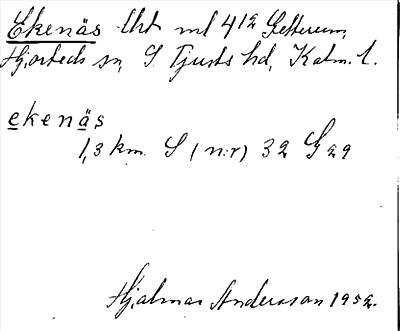 Ekenäs lht ml 4¹² Getterum,
Hjorteds sn, S Tjusts hd, Kalm. l.
ekenäs
1,3 km S (n:r) 32 G 29
Hjalmar Andersson 1952.